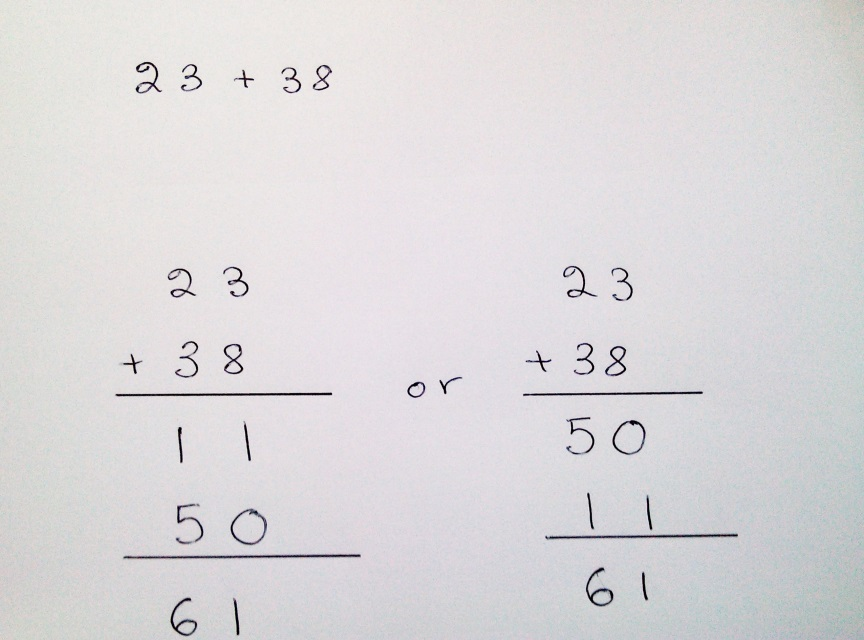 23 + 38
23
+ 38
11
50
61
or
23
+ 38
50
11
61